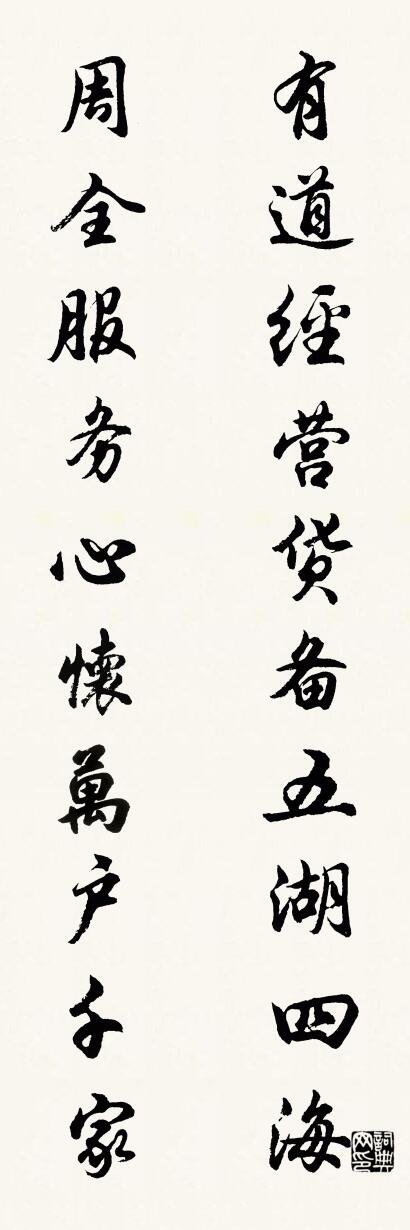 有道經营货备五湖四海
周全服务心懷萬户千家
詞典网印